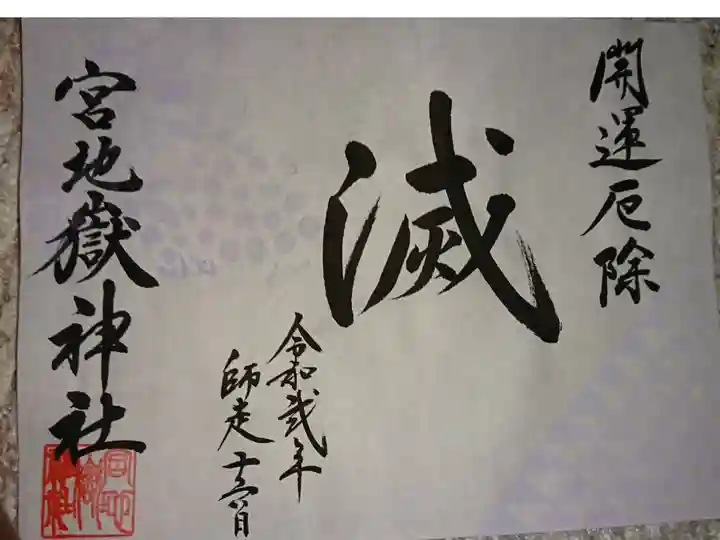 開運厄除
滅
令和弐年
師走十六日
宮地嶽神社